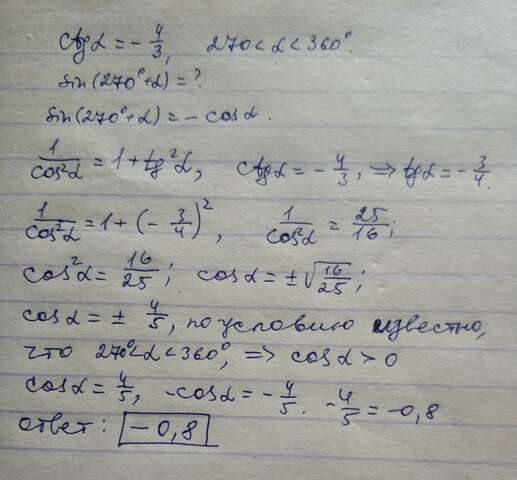 ctgα = -4/3, 270<α<360°.
sin(270°+α) = ?
sin(270°+α) = -cosα.
1/cos²α = 1+tg²α, ctgα = -4/3, ⇒ tgα = -3/4.
1/cos²α = 1+(-3/4)², 1/cos²α = 25/16;
cos²α = 16/25; cosα = ±√16/25;
cosα = ± 4/5, по условию известно,
что 270°<α<360°, ⇒ cosα > 0
cosα = 4/5, -cosα = -4/5. -4/5 = -0,8
ответ: -0,8